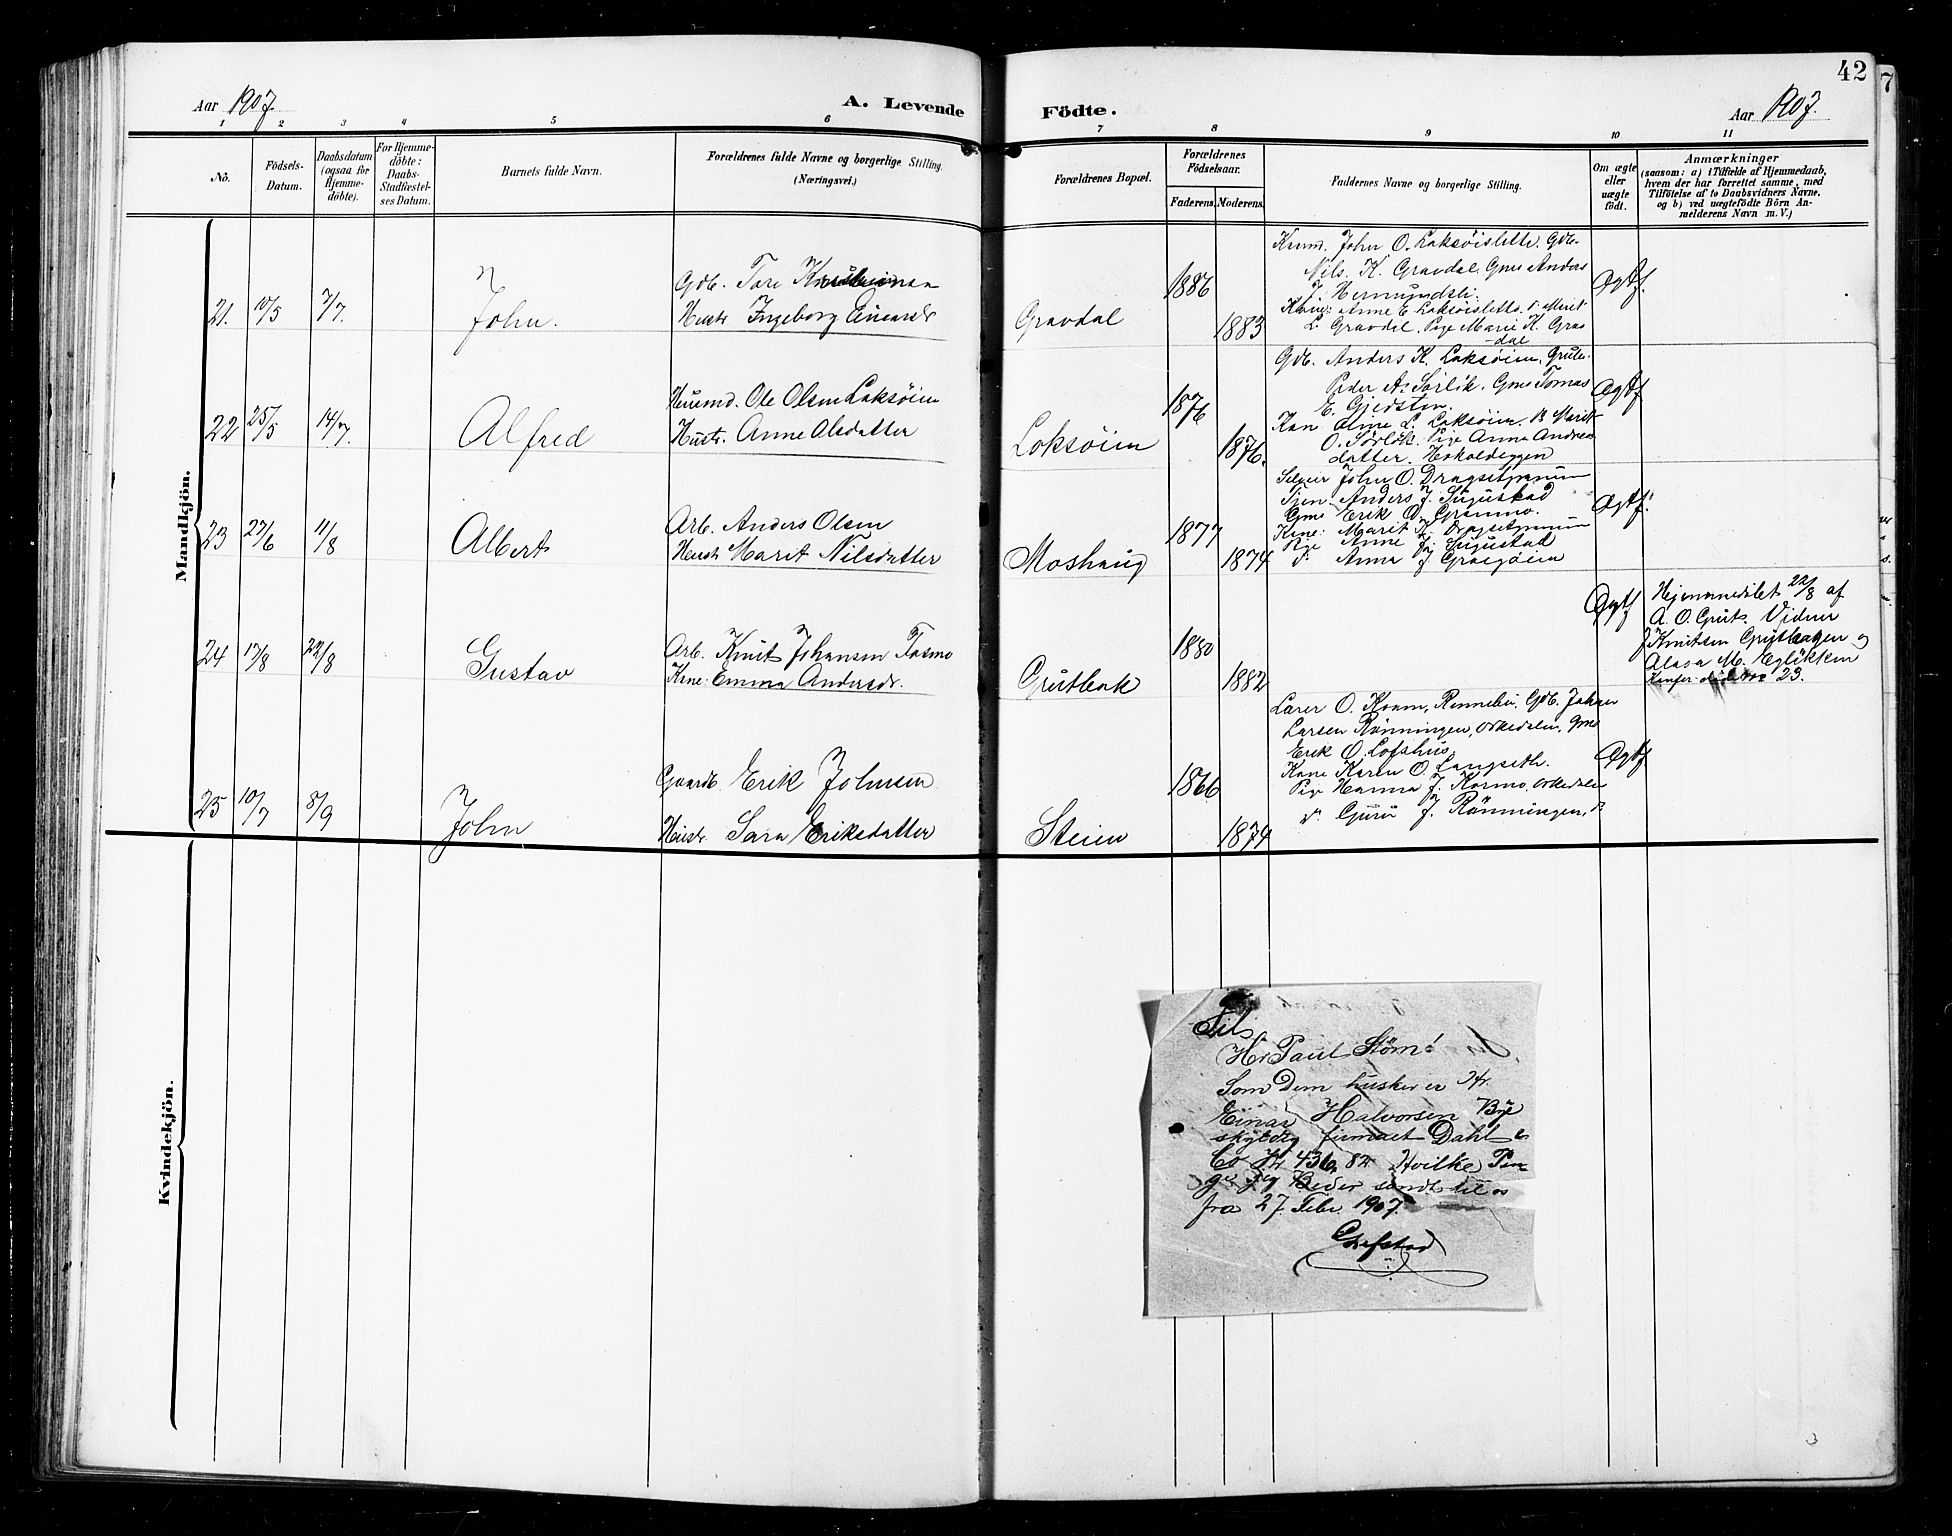 42
7
Aar 1907.
A. Levende
Födte.
Aar 1907.
1 2 3 4 5 6
7 8 9 10 11
No.
Födsels-
Datum.
Daabsdatum
(ogsaa for
Hjemme-
döbte).
For Hjemme-
döbte:
Daabs-
Stadfæstel-
ses Datum.
Barnets fulde Navn.
Forældrenes fulde Navne og borgerlige Stilling.
(Næringsvei.)
Forældrenes Bopæl.
Forældrenes
Födselsaar.
Faderens.
Moderens.
Faddernes Navne og borgerlige Stilling.
Om ægte
eller
uægte
födt.
Anmærkninger
(saasom: a) i Tilfælde af Hjemmedaab,
hvem der har forrettet samme, med
Tilföielse af to Daabsvidners Navne.
og b) ved uægtefödte Börn An-
melderens Navn m. V.)
Mandkjön.
21. 10/5 7/7. John.
Gdb. Tore
Hustr Ingeborg Einarsdr
Gravdal
1886
1883
John O. Loksøislette. Gdb.
Nils. K. Gravdal. Gms Anders
J. Hermundsli.
Anne E. Loksøislette. Marit
L. Gravdal. Pige Marie K. Grav
-dal
Ægtf.
22 25/5 14/7. Alfred
Husmd. Ole Olsen Loksøien
Hustr. Anne Olsdatter
Loksøien
1876
1876.
Gdb. Anders K. Loksøien,
Peder A. Sørlik. Gms Tomas
E. Gjedsten.
Loksøien. Marit
O. Sørlik. Pige Anna Andreas
datter. Haskoldeggen
Ægtf
23 27/6 11/8 Albert
Arb. Anders Olsen
Hustr Marit Nilsdatter
Moshaug
1877
1874
John O. Dragsetmoum
Anders J. Sugustad
Gms Erik O. Grønmo.
Kone: Marit K. Dragsetmoum
Pige Anne J. Sugustad
Anna J. Græsøien
Ægtf.
24 17/8 22/8 Gustav
Arb. Knut Johansen Tosmo
Kone: Emma Andersdr.
Grutbak
1880
1882
Ægtf
Hjemmedøbt 22/8 af
A. O. Grut. Vidner
J Knutsen Gruthagen og
M. Egløkken
23.
25 10/7 8/9 John
Gaardb. Erik Johnsen
Hustr. Sara Eriksdatter
Steien
1866
1874
Lærer O. Kosm, Rennebu. Gdb. Johan
Larsen Rønningen, Orkedalen, Gms
Erik O. Lofshus.
Kone Karen O. Langseth.
Pige Hanna J. Kormo, Orkedalen
Guru J. Rønningen,
Ægtf
Kvindekjön.
Til
Hr Paul Støm!
Som Dem husker er Hr.
Einar Halvorsen Bye
skyldig firmaet Dahl &
Co Kr 436,82 Hvilke Pen-
ge jeg Beder sendt til os
fra 27. Febr. 1907.
Grefstad